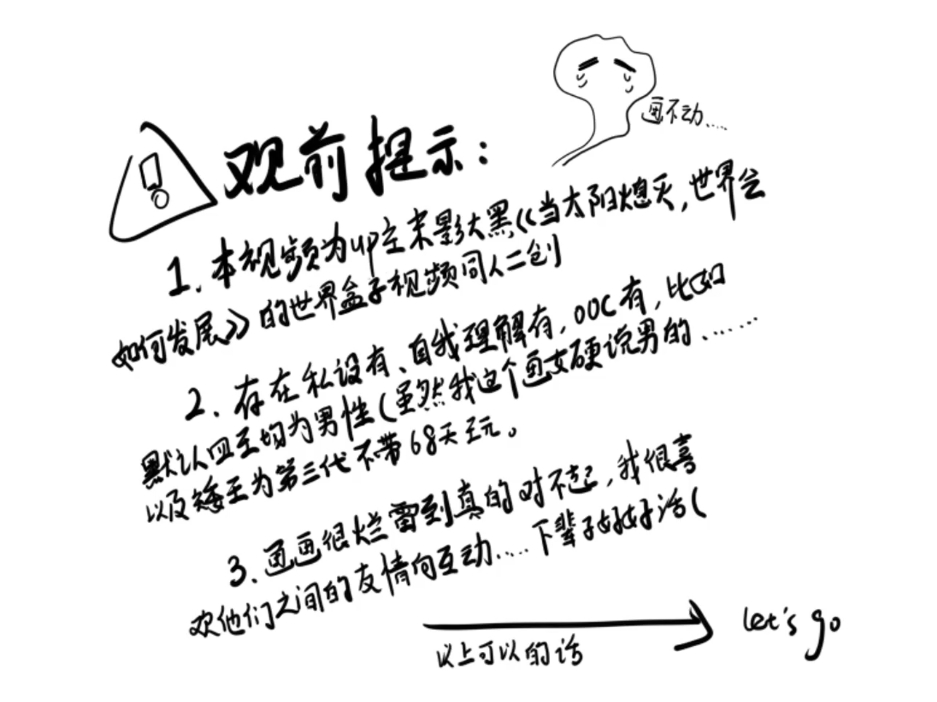 观前提示：
画不动……
1. 本视频为up主末影大黑《当太阳熄灭，世界会
如何发展》的世界盒子视频同人二创
2. 存在私设有、自我理解有，OOC有，比如
默认四王均为男性（虽然我这个画女硬说男的……
以及矮王为第三代不带68天玩。
3. 画画很烂雷到真的对不起，我很喜
欢他们之间的友情向互动……下辈子好好活（
以上可以的话
let's go